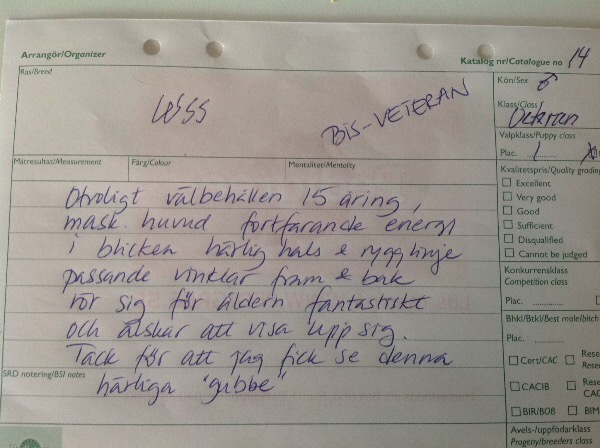 Arrangör/Organizer
Katalog nr/Catalogue no 14
Ras/Breed
BIS-VETERAN
Kön/Sex ♂
Klass/Class
Veteran
Valpklass/Puppy class
Plac. 1
Mätresultat/Measurement
Färg/Colour
Mentalitet/Mentality
Kvalitetspris/Quality grading
Excellent
Very good
Good
Sufficient
Disqualified
Cannot be judged
Otroligt välbehållen 15 åring,
mask. huvud fortfarande energi
i blicken härlig hals & rygglinje
passande vinklar fram & bak
rör sig för åldern fantastiskt
och älskar att visa upp sig.
Tack för att jag fick se denna
härliga "gubbe"
Konkurrensklass
Competition class
Plac.
Bhkl/Btkl/Best male/bitch
Plac.
SRD notering/BSI notes
Cert/CAC
Rese
CACIB
Rese
CAC
BIR/BOB
BIM
Avels-/uppfödarklass
Progeny/breeders class